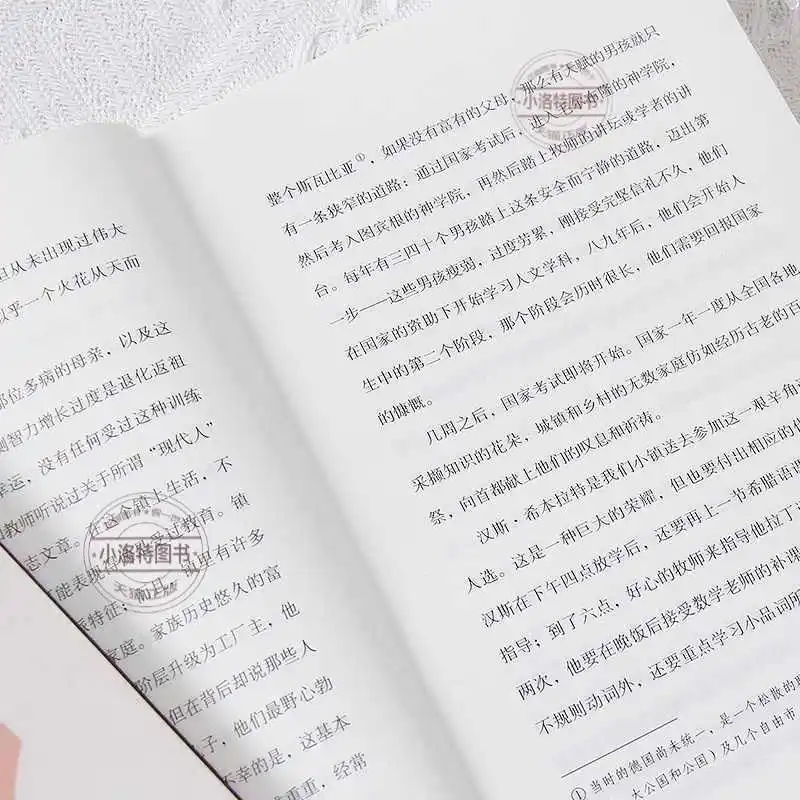 但从未出现过伟大
以乎一个火花从天而
那位多病的母亲，以及这
测智力增长过度是退化返祖
幸运，没有任何受过这种训练
教师听说过关于所谓“现代人”
志文章。在这个镇上生活，不
能表现 受过教育。镇
派特征；而且，镇里有许多
家庭。家族历史悠久的富
阶层升级为工厂主，他
但在背后却说那些人
子，他们最野心勃
不幸的是，这基本
重重，经常
整个斯瓦比亚①，如果没有富有的父母，那么有天赋的男孩就只
有一条狭窄的道路：通过国家考试后，进入毛尔布隆的神学院，
然后考入图宾根的神学院，再然后踏上牧师的讲坛或学者的讲
台。每年有三四十个男孩踏上这条安全而宁静的道路，迈出第
一步——这些男孩瘦弱，过度劳累，刚接受完坚信礼不久，他们
在国家的资助下开始学习人文学科，八九年后，他们会开始人
生中的第二个阶段，那个阶段会历时很长，他们需要回报国家
的慷慨。
几周之后，国家考试即将开始。国家一年一度从全国各地
采撷知识的花朵，城镇和乡村的无数家庭仿如经历古老的百
祭，向首都献上他们的叹息和祈祷。
汉斯·希本拉特是我们小镇送去参加这一艰辛角
人选。这是一种巨大的荣耀，但也要付出相应的代
汉斯在下午四点放学后，还要再上一节希腊语课
指导；到了六点，好心的牧师来指导他拉丁
两次，他要在晚饭后接受数学老师的补课
不规则动词外，还要重点学习小品词所
① 当时的德国尚未统一，是一个松散的
大公国和公国）及几个自由市
小洛特图书
天猫正版
小洛特图书
天猫正版